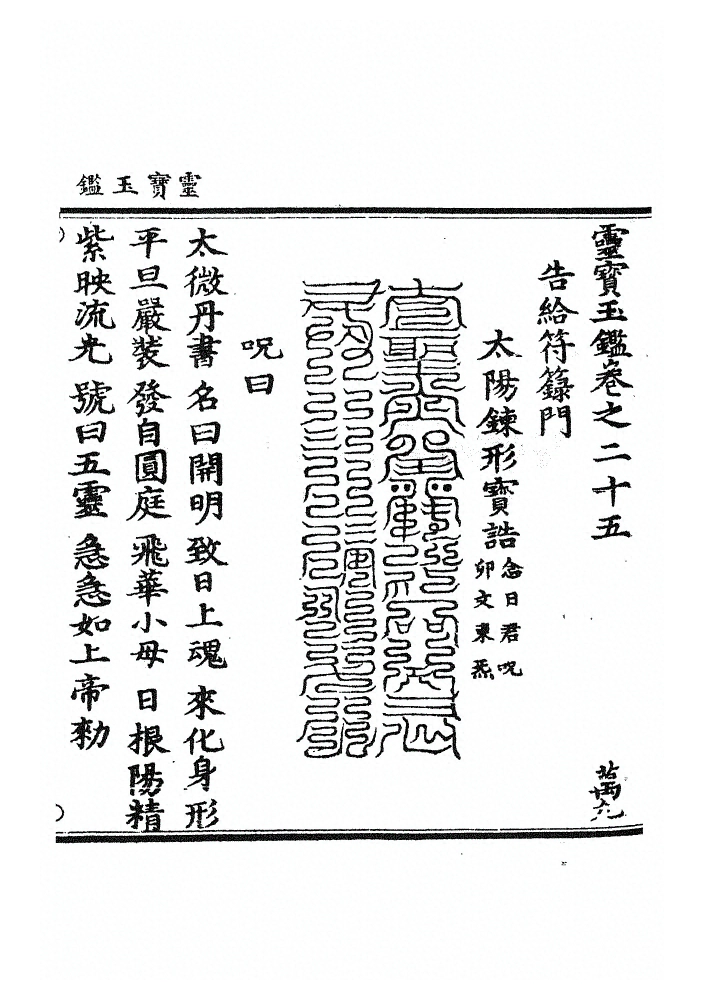 靈寶玉鑑
靈寶玉鑑卷之二十五
萬六
告給符籙門
太陽鍊形寶誥
念日君呪
卯文東炁
呪曰
太微丹書 名曰開明 致日上魂 來化身形
平旦嚴裝 發自圓庭 飛華小母 日根陽精
紫映流光 號曰五靈 急急如上帝勑